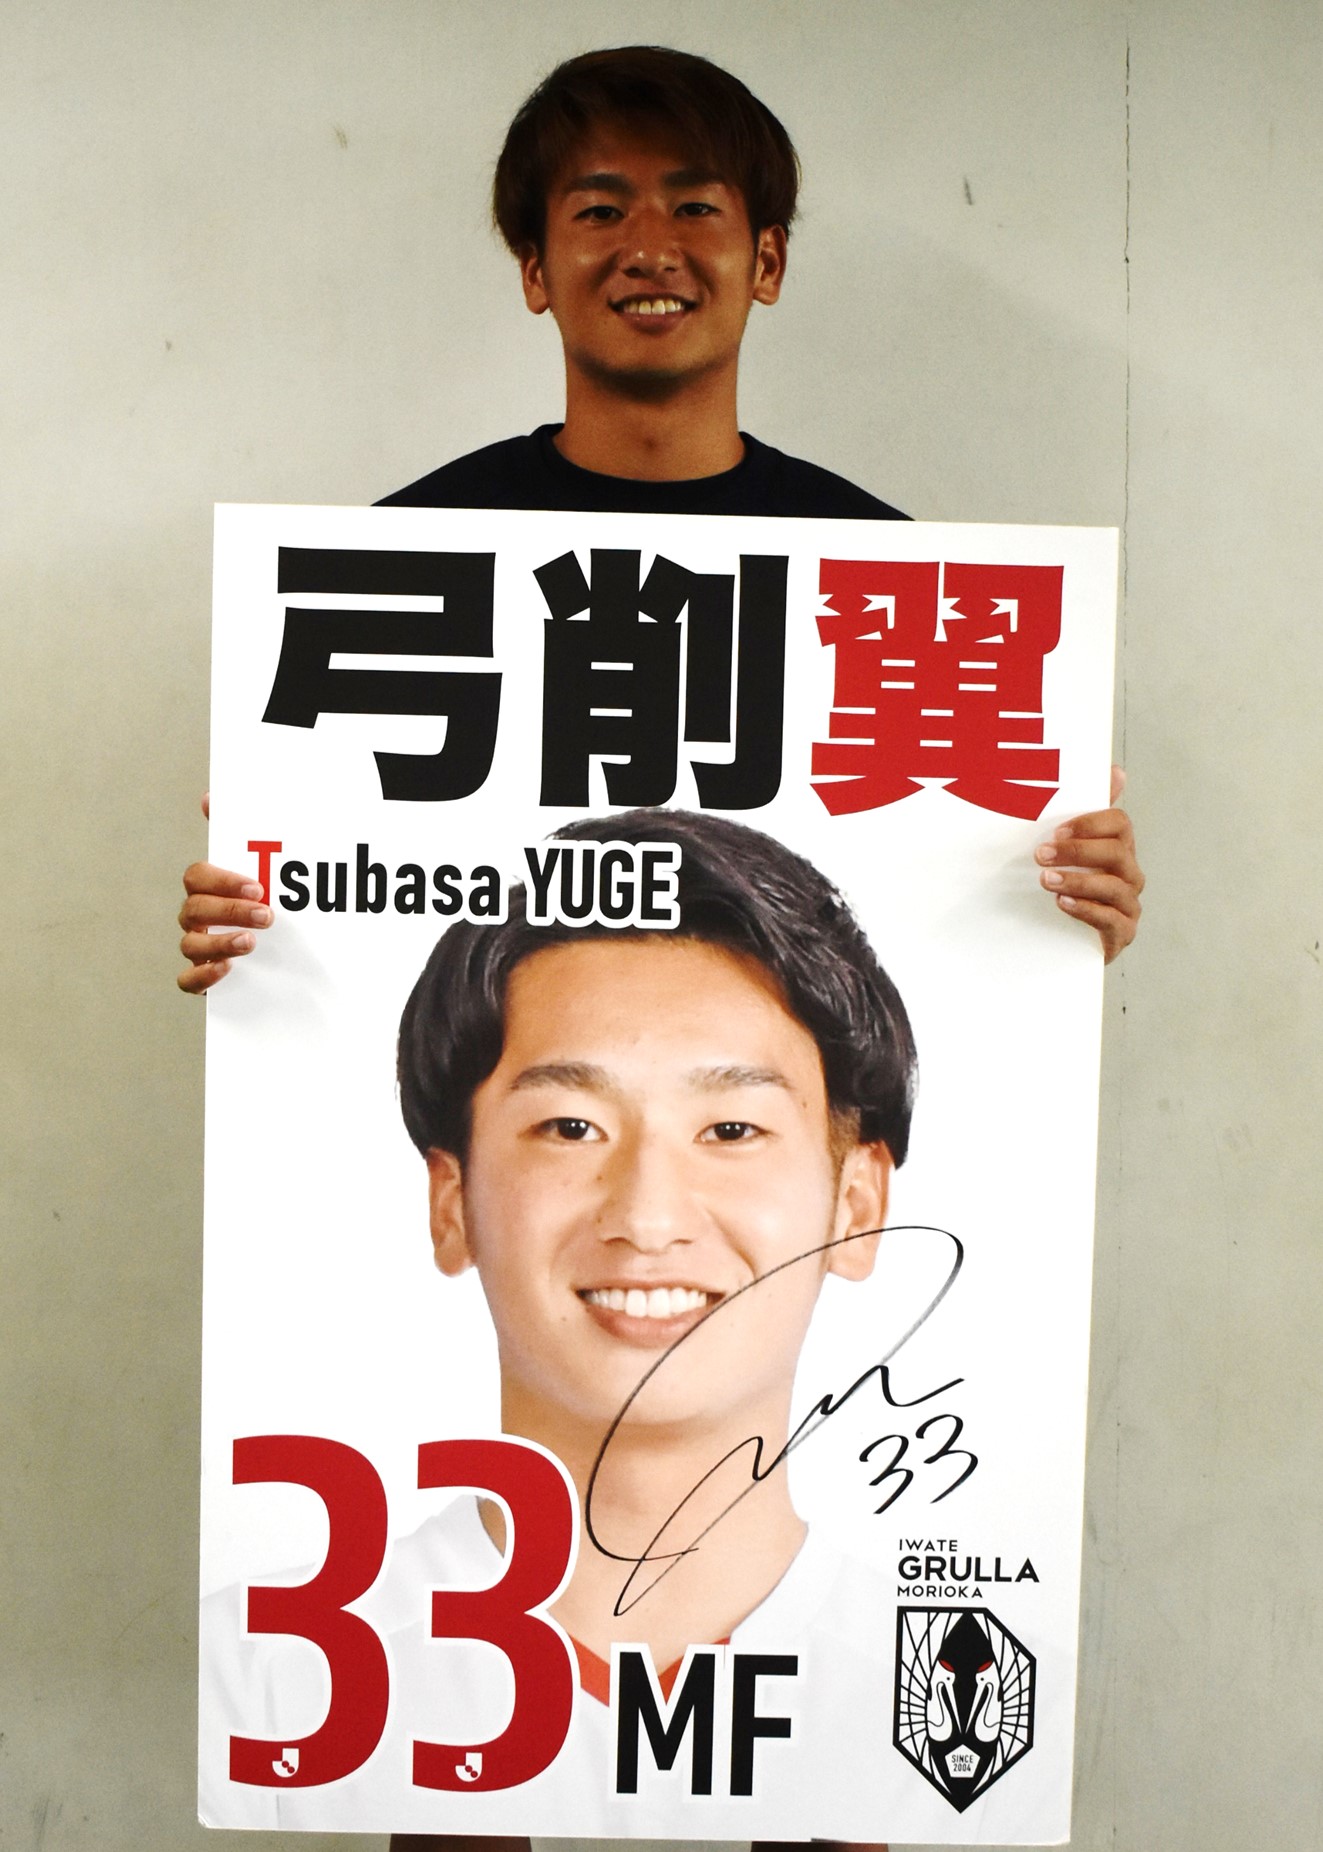 弓削翼
Tsubasa YUGE
33
33 MF
IWATE
GRULLA
MORIOKA
SINCE
2004